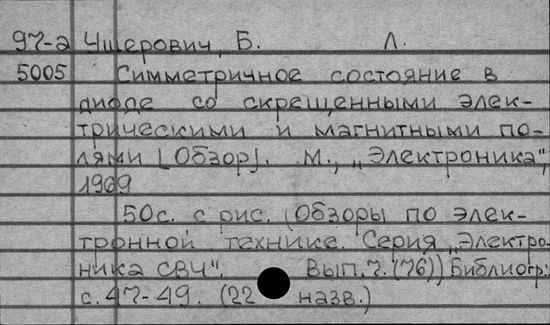 97-а Чщерович, Б. Л.
5005 Симметричное состояние в
диоде со скрещенными элек-
трическими и магнитными по-
лями [Обзор]. М., „Электроника",
1969
50с. с рис. (Обзоры по элек-
тронной технике. Серия „Электро-
ника СВЧ". Вып.7. (76)) Библиогр.:
с. 47-49. (22 назв.)